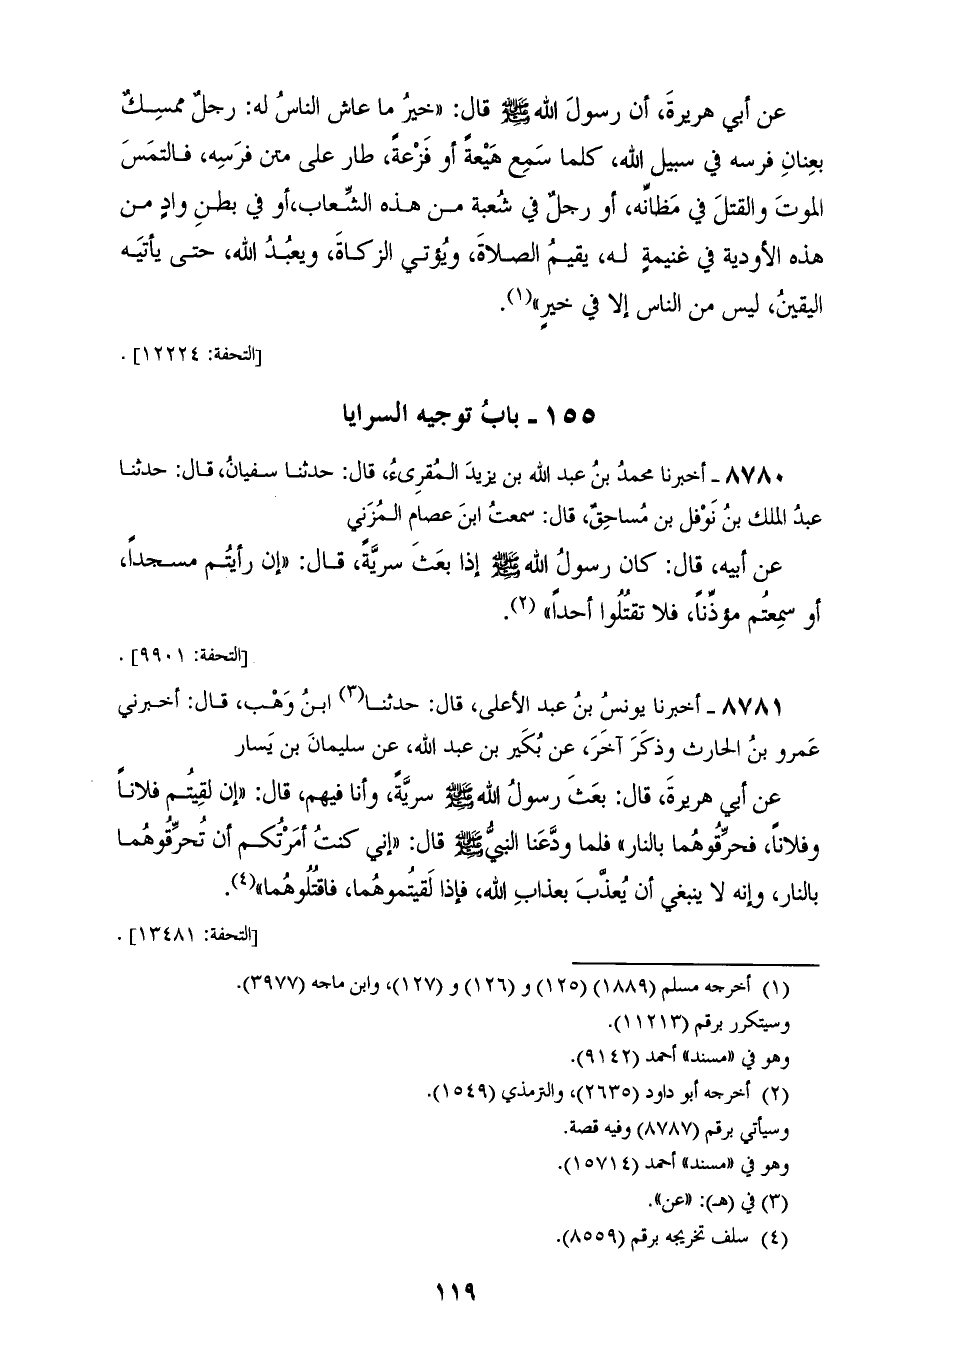 عن أبي هريرةَ، أن رسولَ الله ﷺ قال: «خيرُ ما عاش الناسُ له: رجلٌ ممسِكٌ
بعِنانِ فرسه في سبيل الله، كلما سَمِع هَيْعةً أو فَزْعةً، طار على متن فرَسِه، فالتمَسَ
الموتَ والقتلَ في مَظانِّه، أو رجلٌ في شُعبة من هذه الشِّعاب،أو في بطنِ وادٍ من
هذه الأودية في غنيمةٍ له، يقيمُ الصلاةَ، ويُؤتي الزكاةَ، ويعبُدُ الله، حتى يأتيَه
اليقينُ، ليس من الناس إلا في خيرٍ»(١).
[التحفة: ١٢٢٢٤] .
١٥٥ - بابُ توجيه السرايا
٨٧٨٠ - أخبرنا محمدُ بنُ عبد الله بن يزيدَ المُقرِىءُ، قال: حدثنا سفيانُ، قال: حدثنا
عبدُ الملك بنُ نَوْفل بن مُساحِقٌ، قال: سمعتُ ابنَ عصام المُزَني
عن أبيه، قال: كان رسولُ الله ﷺ إذا بعَثَ سريَّةً، قال: «إن رأيتُم مسجداً،
أو سمِعتُم مؤذِّناً، فلا تقتُلُوا أحداً» (٢).
[التحفة: ٩٩٠١] .
٨٧٨١ - أخبرنا يونسُ بنُ عبد الأعلى، قال: حدثنا(٣) ابنُ وَهْب، قال: أخبرني
عَمرو بنُ الحارث وذكَرَ آخَرَ، عن بُكَير بن عبد الله، عن سليمانَ بن يَسار
عن أبي هريرةَ، قال: بعَثَ رسولُ الله ﷺ سريَّةً، وأنا فيهم، قال: «إن لقِيتُم فلاناً
وفلاناً، فحرِّقُوهُما بالنار» فلما ودَّعَنا النبيُّ ﷺ قال: «إني كنتُ أمَرْتُكم أن تُحرِّقُوهُما
بالنار، وإنه لا ينبغي أن يُعذَّبَ بعذابِ الله، فإذا لَقيتُموهُما، فاقتُلُوهُما»(٤).
[التحفة: ١٣٤٨١] .
(١) أخرجه مسلم (١٨٨٩) (١٢٥) و (١٢٦) و (١٢٧)، وابن ماجه (٣٩٧٧).
وسيتكرر برقم (١١٢١٣).
وهو في «مسند» أحمد (٩١٤٢).
(٢) أخرجه أبو داود (٢٦٣٥)، والترمذي (١٥٤٩).
وسيأتي برقم (٨٧٨٧) وفيه قصة.
وهو في «مسند» أحمد (١٥٧١٤).
(٣) في (هـ): «عن».
(٤) سلف تخريجه برقم (٨٥٥٩).
١١٩